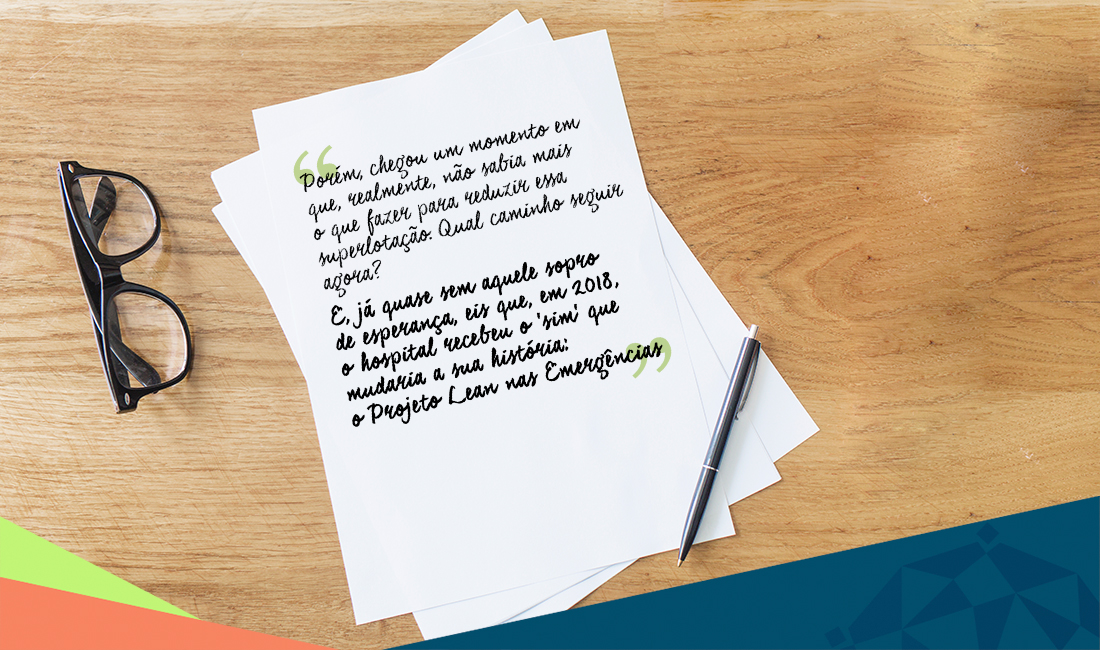 “Porém, chegou um momento em
que, realmente, não sabia mais
o que fazer para reduzir essa
superlotação. Qual caminho seguir
agora?
E, já quase sem aquele sopro
de esperança, eis que, em 2018,
o hospital recebeu o 'sim' que
mudaria a sua história:
o Projeto Lean nas Emergências”